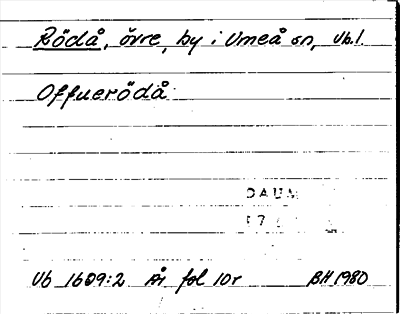 Rödå, övre, by i Umeå sn, Vb.l.
Offuerödå
DAUM
Vb 1609:2 År fol 10r BH 1980